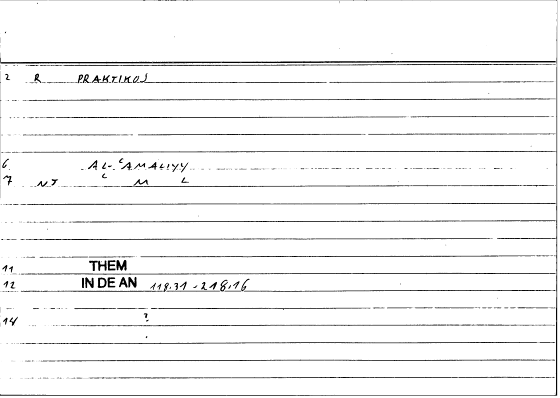 2 R PRAKTIKOS
6 AL-ʿAMALIYY
7 NJ ʿ M L
11 THEM
12 IN DE AN 118.31-218.16
14 ?
.